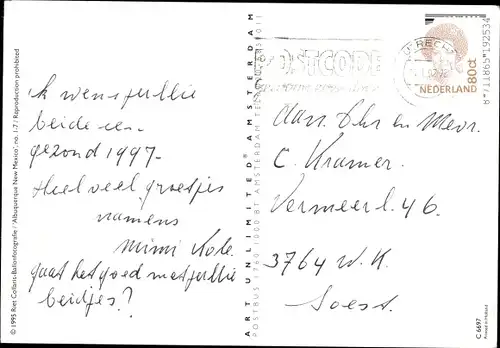 Ik wens jullie
beide een
gezond 1997-
Heel veel groetjes
namens
Mimi Kole.
gaat het goed met jullie
beidjes?
© 1995 Riet Gofferis-Ballonfotografie / 'Albuquerque New Mexico', no. I-7 / Reproduction prohibited
ART UNLIMITED® AMSTERDAM
POSTBUS 1760 1000 BT AMSTERDAM
POSTCODE
UTRECHT
80ct
NEDERLAND
8471118651925 34
aan. Dhr en Mevr.
C. Kramer.
Vermeerl. 46.
3764 W.K.
Soest.
C 6697
Printed in Holland